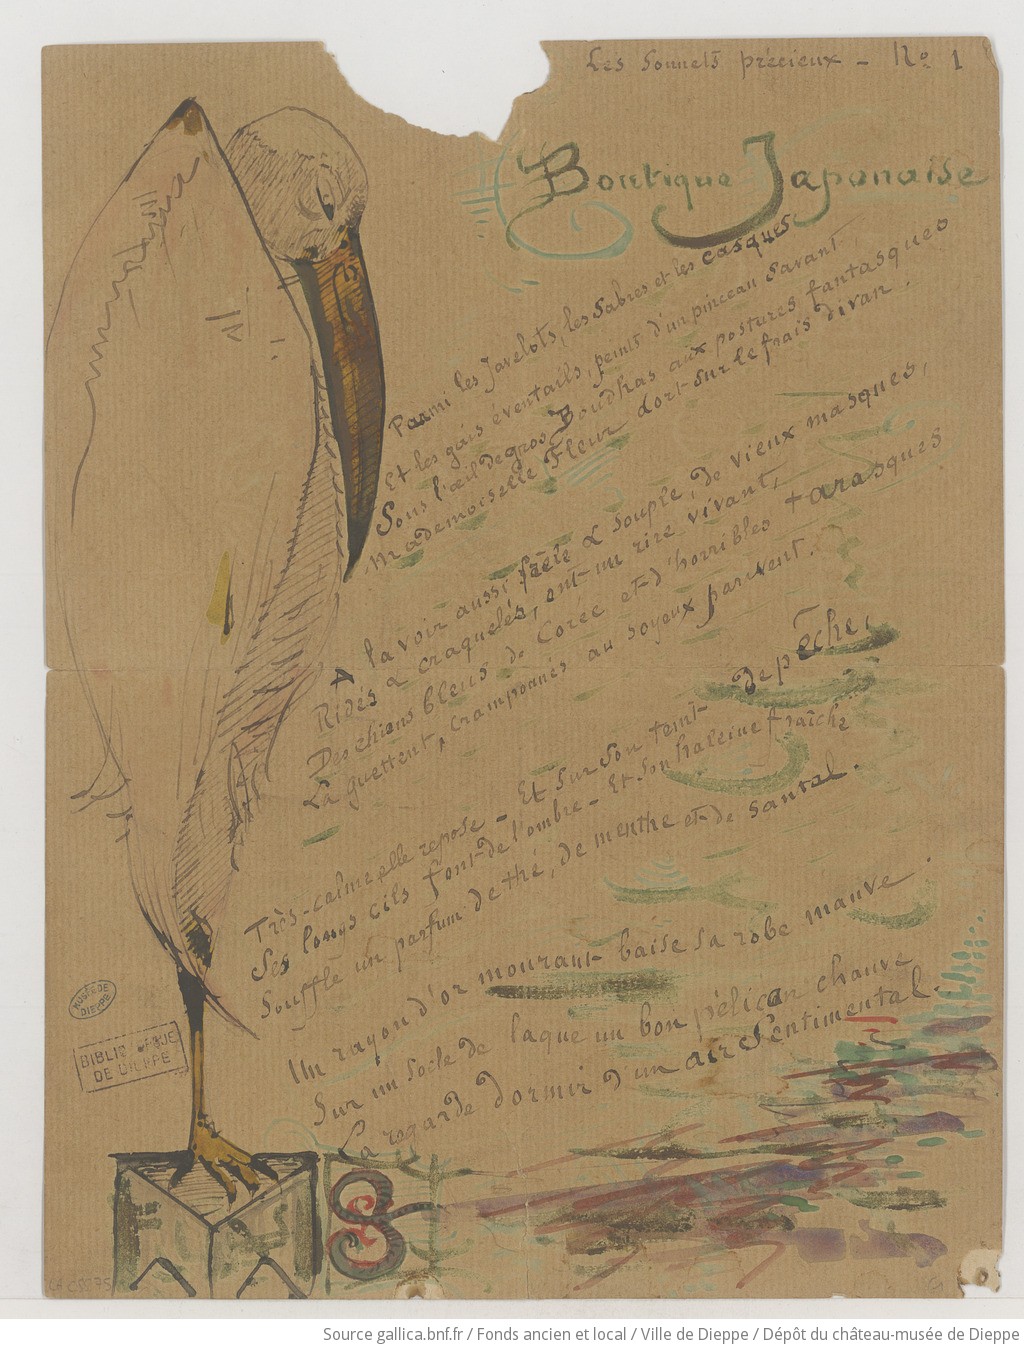 Les Sonnets précieux - No 1
Boutique Japonaise
Parmi les Javelots, les Sabres et les casques
Et les gais éventails, peints d'un pinceau savant,
Sous l'œil de gros Boudhas aux postures fantasques
Mademoiselle Fleur dort sur le frais divan.
A la voir aussi frêle & souple, de vieux masques,
Ridés & craquelés, ont un rire vivant,
Des chiens bleus de Corée et d'horribles tarasques
La guettent, cramponnés au soyeux paravent.
Très-calme elle repose - Et sur son teint de pêche,
Ses longs cils font de l'ombre - Et son haleine fraîche
Souffle un parfum de thé, de menthe et de santal.
Un rayon d'or mourant baise sa robe mauve.
Sur un socle de laque un bon pélican chauve
La regarde dormir d'un air sentimental.
MUSÉE DE
DIEPPE
BIBLIOTHÈQUE
DE DIEPPE
Source gallica.bnf.fr / Fonds ancien et local / Ville de Dieppe / Dépôt du château-musée de Dieppe